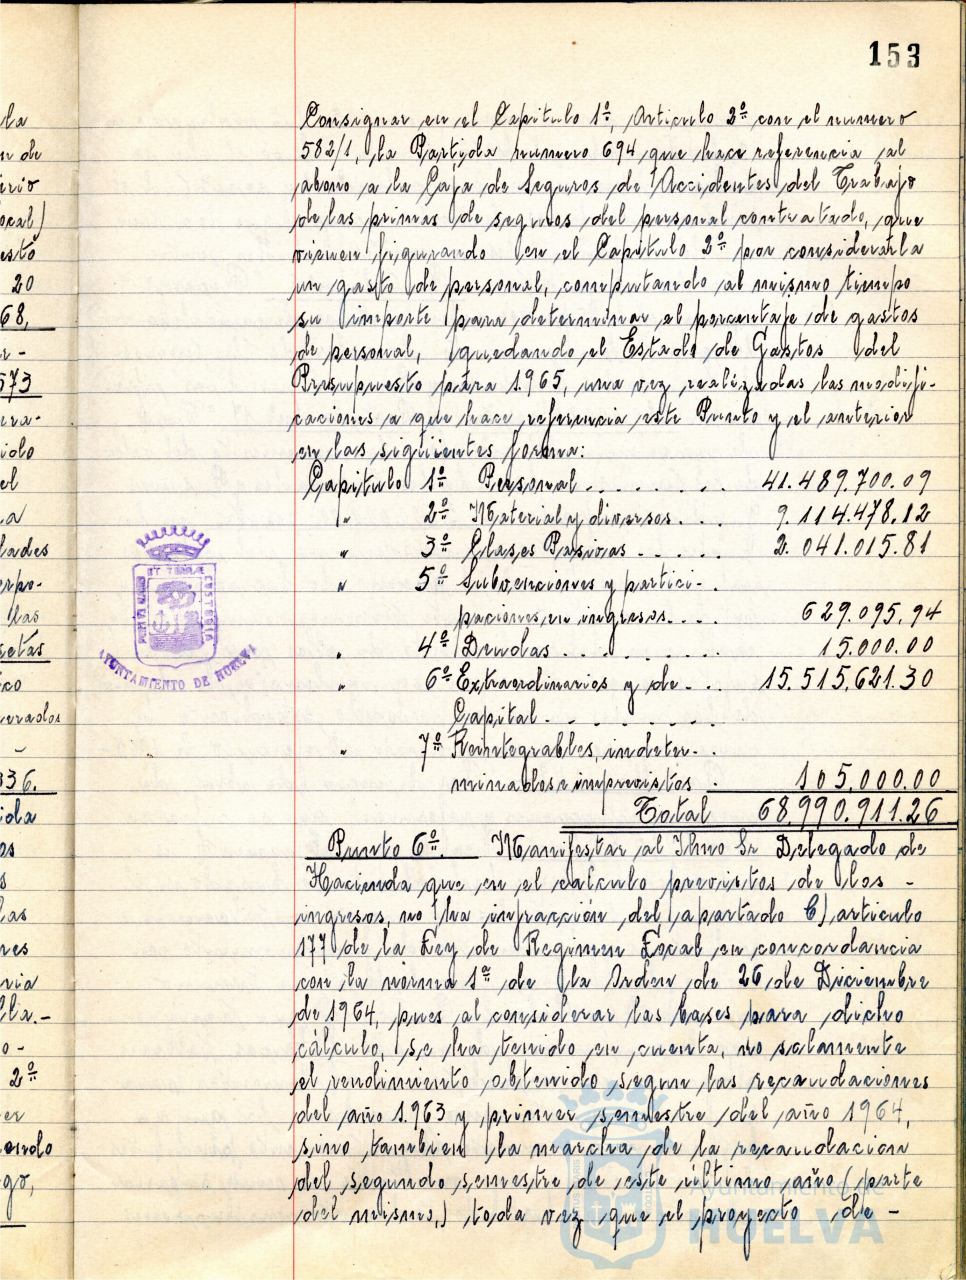 153
Consignar en el Capitulo 1º, Articulo 2º con el numero
582/1, la Partida numero 694 que hace referencia al
abono a la Caja de Seguros de Accidentes del Trabajo
de las primas de seguros del personal contratado, que
vienen figurando en el Capitulo 2º por considerarla
un gasto de personal, computando al mismo tiempo
su importe para determinar el porcentaje de gastos
de personal, quedando el Estado de Gastos del
Presupuesto para 1.965, una vez realizadas las modifi-
caciones a que hace referencia este Punto y el anterior
en las sigüientes forma:
Capitulo 1º Personal . . . . . . . 41.489.700.09
" 2º Material y diversos . . . 9.114.478.12
" 3º Clases Pasivas . . . . . 2.041.015.81
" 5º Subvenciones y partici-
paciones en ingresos . . . . 629.095,94
" 4º Deudas . . . . . . . . . 15.000.00
" 6º Extraordinarios y de . . . 15.515,621.30
Capital . . . . . . . .
" 7º Reintegrables, indeter- .
minados e imprevistos . 105,000.00
Total 68.990.911.26
Punto 6º. Manifestar al Ilmo Sr Delegado de
Hacienda que en el calculo previstos de los -
ingresos, no ha infracción del apartado C) articulo
177 de la Ley de Regimen Local en concordancia
con la norma 1ª de la Orden de 26 de Diciembre
de 1964, pues al considerar las bases para dicho
cálculo, se ha tenido en cuenta, no solamente
el rendimiento obtenido segun las recaudaciones
del año 1.963 y primer semestre del año 1964,
sino tambien la marcha de la recaudacion
del segundo semestre de este último año (parte
del mismo,) toda vez que el proyecto de -
AYUNTAMIENTO DE HUELVA
Ayuntamiento de
HUELVA
la
n de
erio
ocal)
esto
20
68.
r-
573
ura-
ido
el
a
lades
erpo-
las
setas
ico
uerados
-
336.
iola
os
s
las
res
ria
lla.-
o-
2º
er
endo
go,